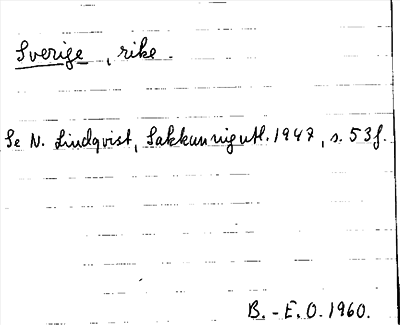 Sverige, rike.
Se N. Lindqvist, Sakkunnigutl. 1947, s. 53f.
B.-E.O. 1960.